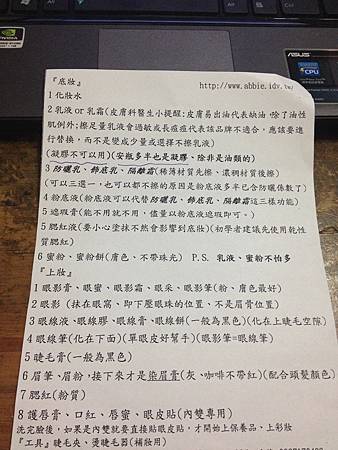 NVIDIA
ASUS
CPU
『底妝』 http://www.abbie.idv.tw/
1 化妝水
2 乳液 or 乳霜(皮膚科醫生小提醒:皮膚易出油代表缺油,除了油性
肌例外;擦足量乳液會過敏或長痘痘代表該品牌不適合,應該要進
行替換,而不是變成少量或選擇不擦乳液)
(凝膠不可以用)(安瓶多半也是凝膠、除非是油類的)
3 防曬乳、飾底乳、隔離霜(稀薄材質先擦、濃稠材質後擦)
(可以三選一,也可以都不擦的原因是粉底液多半已含防曬係數了)
4 粉底液(粉底液可以代替防曬乳、飾底乳、隔離霜這三樣功能)
5 遮瑕膏(能不用就不用,儘量以粉底液遮瑕即可。)
5 腮紅液(要小心塗抹不然會影響到底妝)(初學者建議先使用乾性
質腮紅)
6 蜜粉、蜜粉餅(膚色、不帶珠光) P.S. 乳液、蜜粉不怕多
『上妝』
1 眼影膏、眼蜜、眼影霜、眼采、眼影筆(粉、膚色最好)
2 眼影 (抹在眼窩、即下壓眼珠的位置、不是眉骨位置)
3 眼線液、眼線膠、眼線膏、眼線餅(一般為黑色)(化在上睫毛空隙)
4 眼線筆(化在下面)(單眼皮好幫手)(眼影筆=眼線筆)
5 睫毛膏(一般為黑色)
6 眉筆、眉粉,接下來才是染眉膏(灰、咖啡不帶紅)(配合頭髮顏色)
7 腮紅(粉質)
8 護唇膏、口紅、唇蜜、眼皮貼(內雙專用)
洗完臉後,如果是內雙就要直接貼眼皮貼,才開始上保養品、上彩妝
『工具』睫毛夾、燙睫毛器(補妝用)